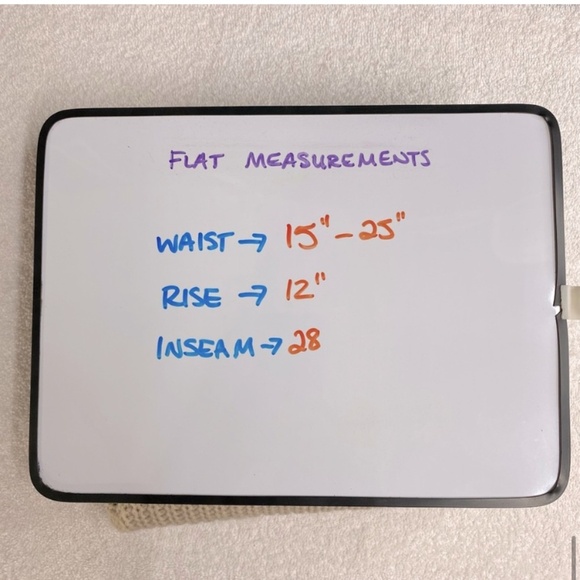 FLAT MEASUREMENTS
WAIST → 15" - 25"
RISE → 12"
INSEAM → 28